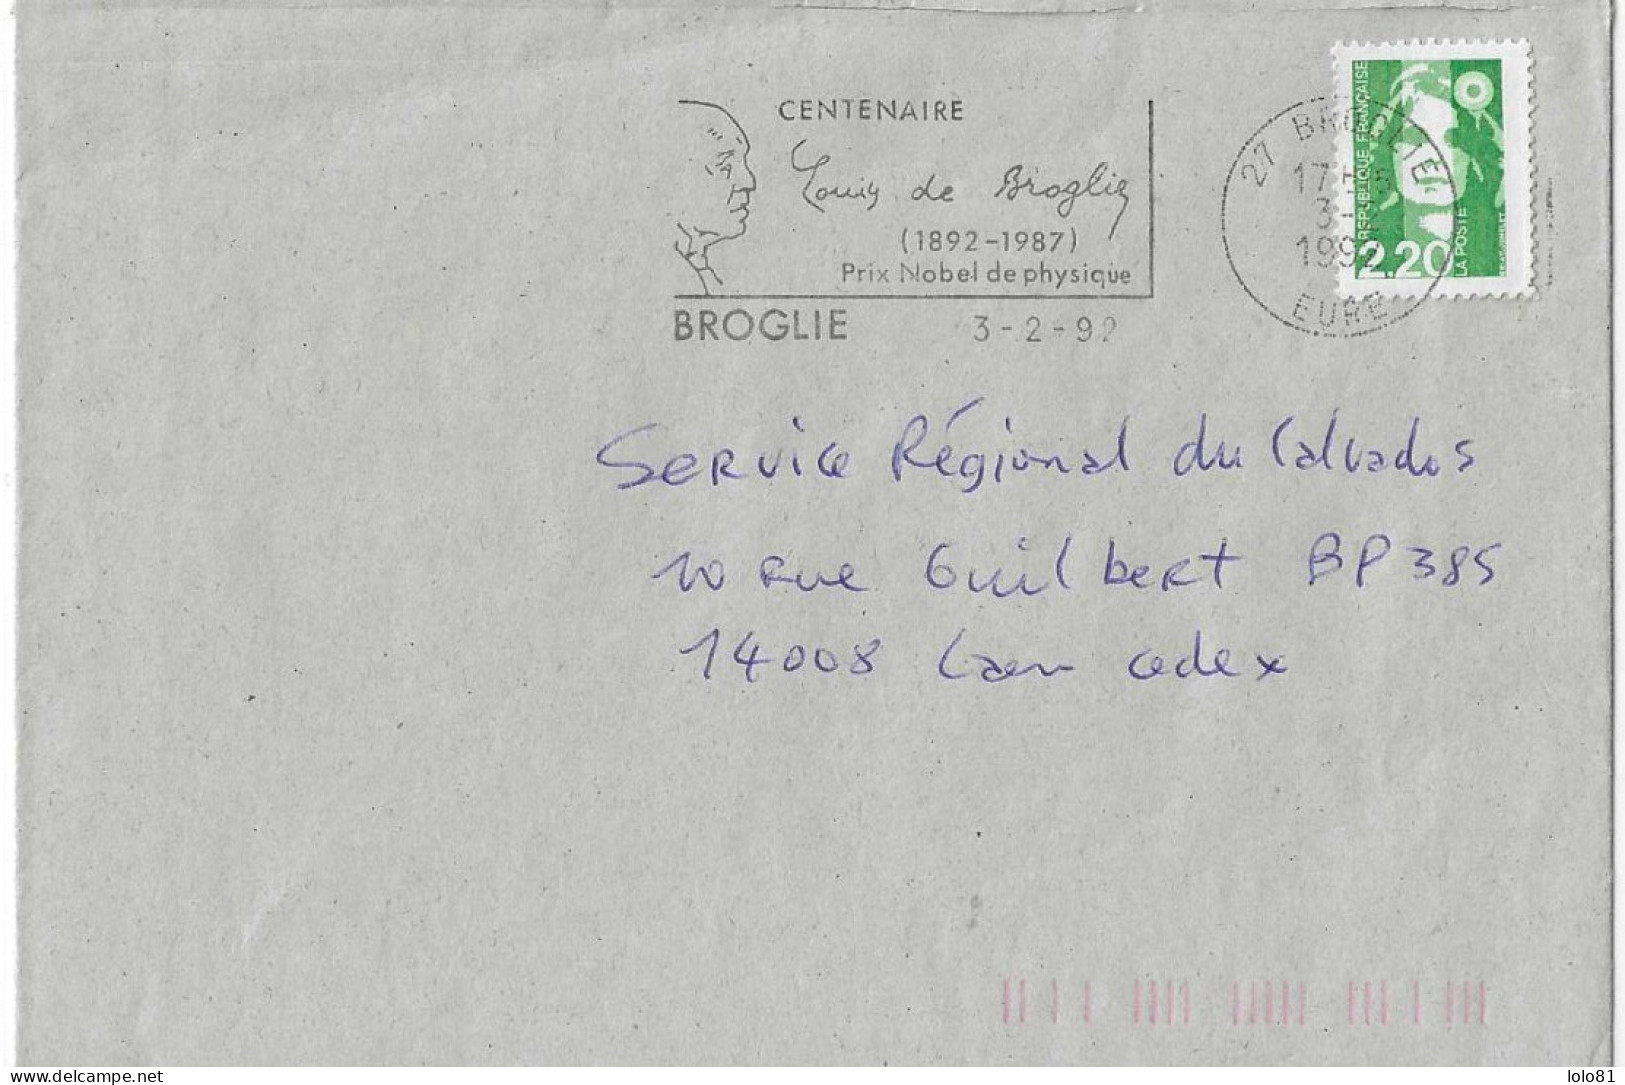 CENTENAIRE
Louis de Broglie
(1892-1987)
Prix Nobel de physique
BROGLIE 3-2-92
27 BROGLIE
17H
3-2
1992
EURE
REPUBLIQUE FRANÇAISE
2,20
LA POSTE
Service Régional du Calvados
10 Rue Guilbert BP 385
14008 Caen cedex
www.delcampe.net
lolo81